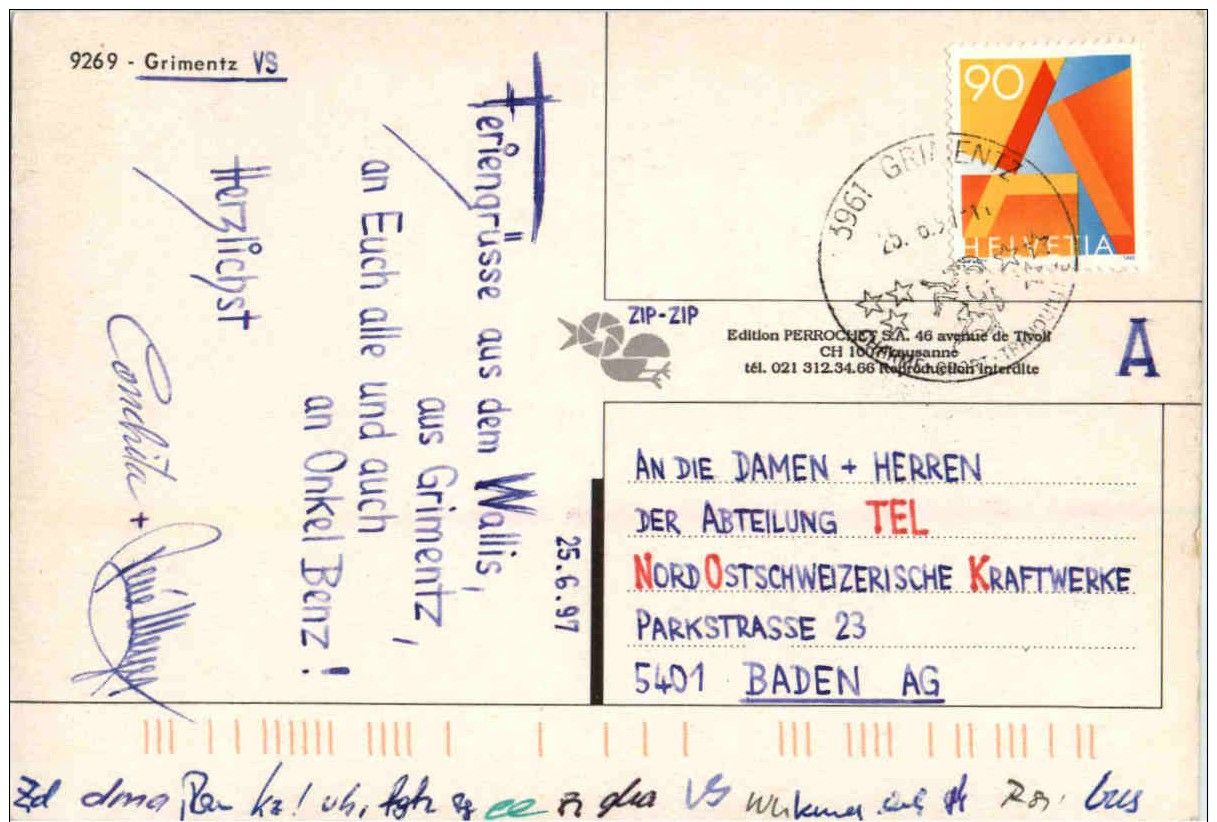 9269 - Grimentz VS
Feriengrüsse aus dem Wallis,
aus Grimentz,
an Euch alle und auch
an Onkel Benz!
Herzlichst
Conchita +
25.6.97
90
HELVETIA
3961 GRIMENTZ
ZIP-ZIP
Edition PERROCHET S.A. 46 avenue de Tivoli
CH 1007 Lausanne
tél. 021 312.34.66 Reproduction interdite
A
AN DIE DAMEN + HERREN
DER ABTEILUNG TEL
NORDOSTSCHWEIZERISCHE KRAFTWERKE
PARKSTRASSE 23
5401 BADEN AG
Zd VS bus